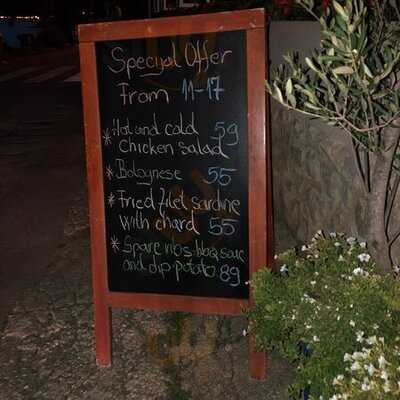 Special Offer
From 11-17
* Hot and cold 59
Chicken salad
* Bolognese 55
* Fried filet sardine
with chard 55
* Spare ribs, bbq sauc
and dip potato 89